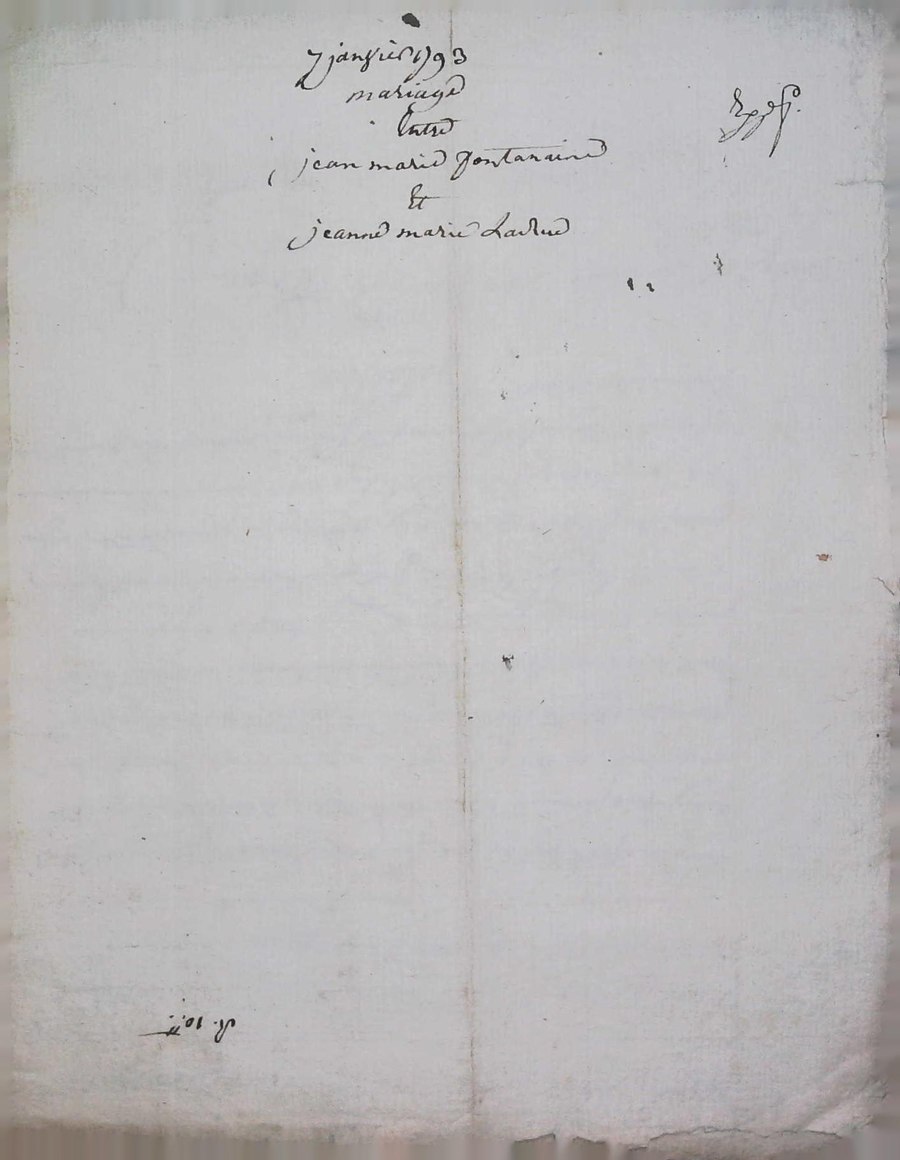 7 janvier 1793
mariage
Entre
jean marie fontanaine
Et
jeanne marie Ladrue